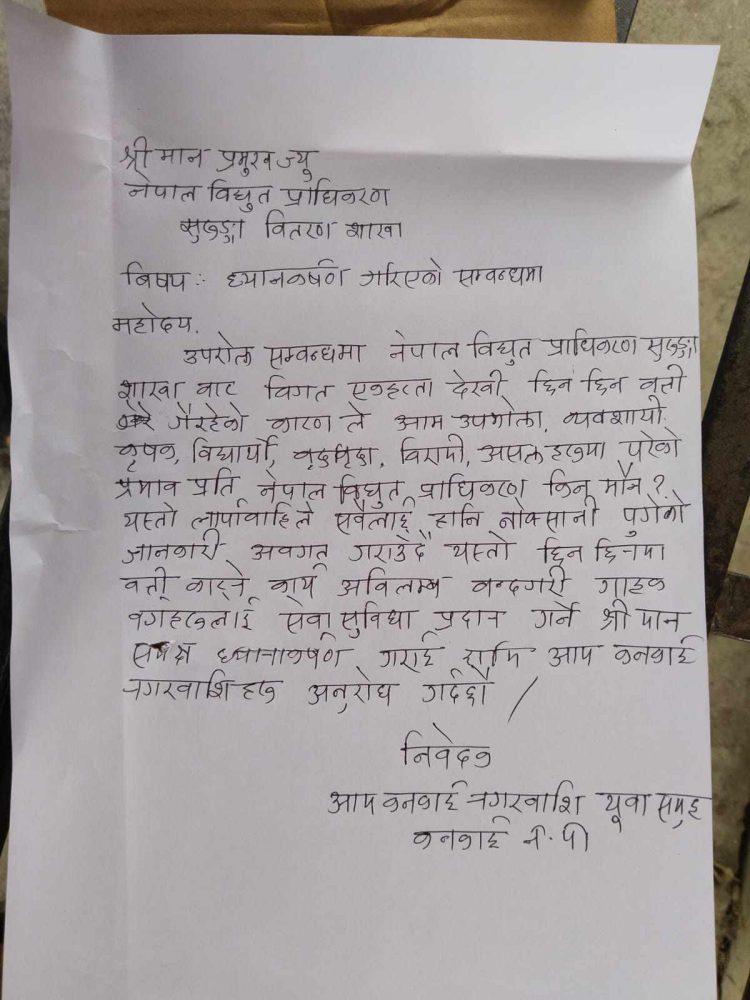 श्रीमान प्रमुखज्यू
नेपाल विद्युत प्राधिकरण
सुरुङ्गा वितरण शाखा
बिषय :- ध्यानकर्षण गरिएको सम्बन्धमा
महोदय,
उपरोक्त सम्बन्धमा नेपाल विद्युत प्राधिकरण सुरुङ्गा
शाखा बाट विगत एकहप्ता देखी छिन छिन वत्ती
गैरहेको कारण ले आम उपभोक्ता, व्यवशायी
कृषक, विद्यार्थी, वृद्धवृद्धा, विरामी, असक्त हरुमा परेको
प्रभाव प्रति नेपाल विद्युत प्राधिकरण किन मौन ?
यस्तो लार्पावाहिले सवैलाई हानि नोक्सानी पुगेको
जानकारी अवगत गराउँदै यस्तो छिन छिनमा
वत्ती काट्ने कार्य अविलम्ब बन्दगरी ग्राहक
वगहरुलाई सेवा सुविधा प्रदान गर्न श्रीमान
समक्ष ध्यानाकर्षण गराई हामि आम कनकाई
नगरवाशि हरु अनुरोध गर्दछौं /
निवेदक
आम कनकाई नगरवाशि यूवा समुह
कनकाई न.पा